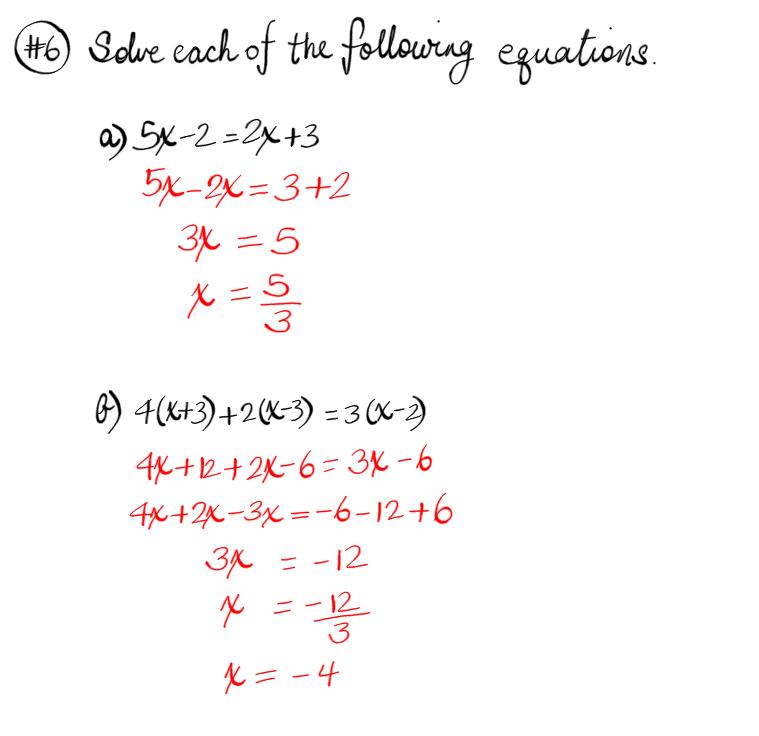 #6 Solve each of the following equations.
a) 5x-2=2x+3
5x-2x=3+2
3x = 5
x = 5/3
b) 4(x+3)+2(x-3) = 3(x-2)
4x+12+2x-6=3x-6
4x+2x-3x=-6-12+6
3x = -12
x = -12/3
x = -4